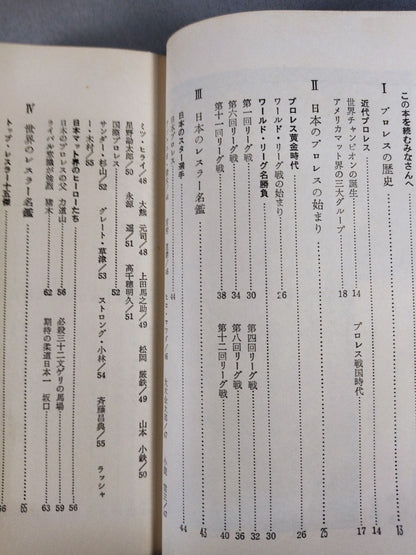 この本を読むみなさんへ
Ⅰ プロレスの歴史……13
近代プロレス……14
世界チャンピオンの誕生……14 プロレス戦国時代……17
アメリカマット界の三大グループ……18
Ⅱ 日本のプロレスの始まり……25
プロレス黄金時代……26
ワールド・リーグ戦の始まり……26
ワールド・リーグ名勝負……30
第一回リーグ戦……30 第四回リーグ戦……32
第六回リーグ戦……34 第八回リーグ戦……36
第十一回リーグ戦……38 第十二回リーグ戦……40
Ⅲ 日本のレスラー名鑑……43
日本のスター選手……44
日本プロレス……44
ミツ・ヒライ/48 大熊 元司/48 上田馬之助/49 松岡 巌鉄/49 山本 小鉄/50
星野勘太郎/50 永源 遥/51 高千穂明久/51
国際プロレス……52
サンダー・杉山/52 グレート・草津/53 ストロング・小林/54 斉藤昌典/55 ラッシャ
ー・木村/55
日本マット界のヒーローたち……56
日本のプロレスの父 力道山……56 必殺三十二文ゲリの馬場……59
ライバル意識が強烈 猪木……62 期待の柔道日本一 坂口……63
Ⅳ 世界のレスラー名鑑……65
トップ・レスラー十五傑……66